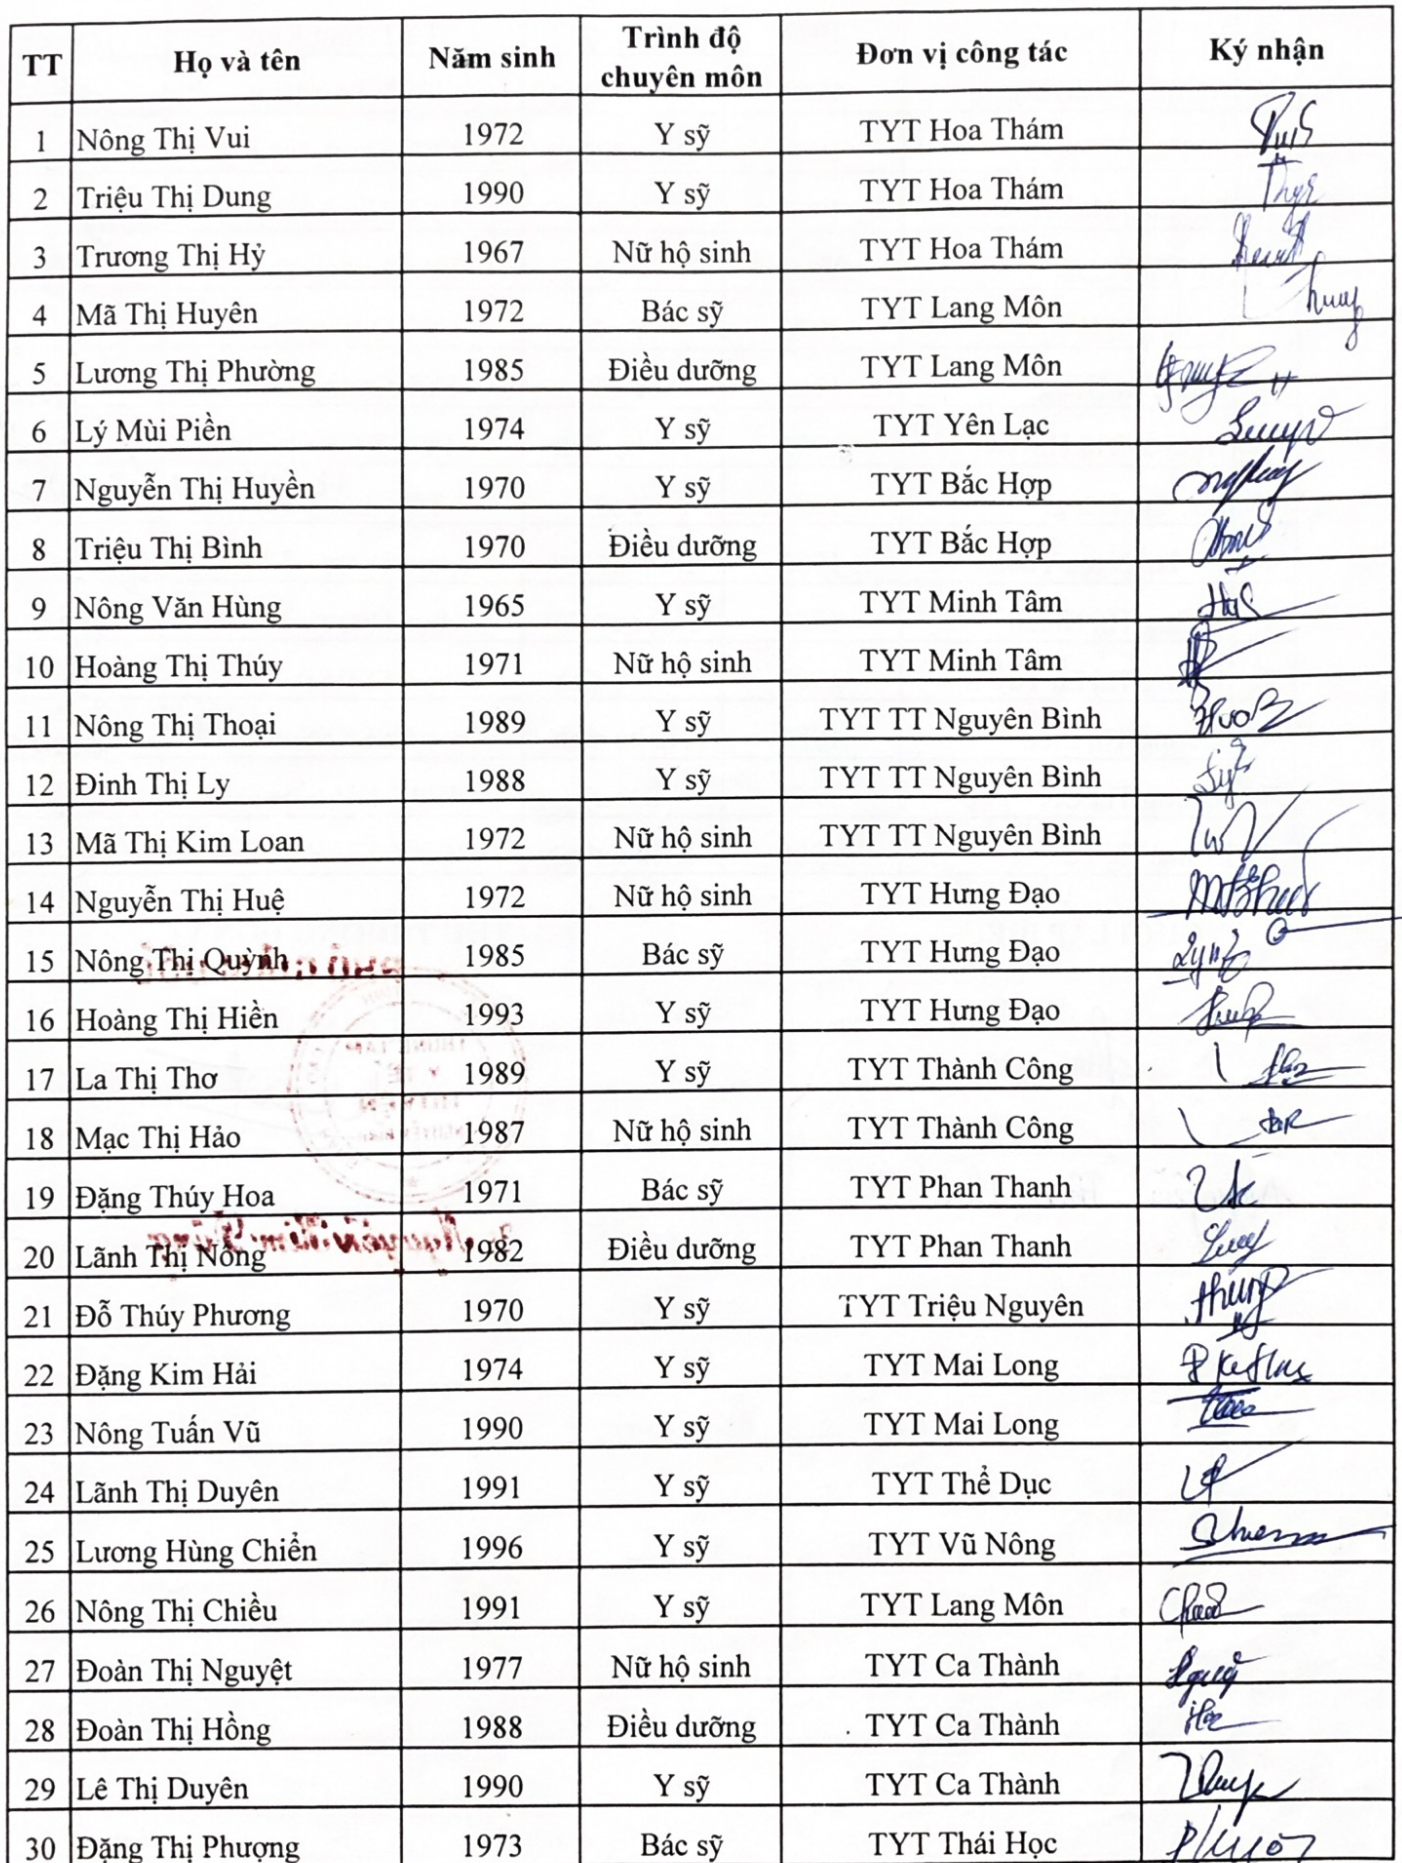 TT Họ và tên Năm sinh Trình độ chuyên môn Đơn vị công tác Ký nhận
1 Nông Thị Vui 1972 Y sỹ TYT Hoa Thám
2 Triệu Thị Dung 1990 Y sỹ TYT Hoa Thám
3 Trương Thị Hỷ 1967 Nữ hộ sinh TYT Hoa Thám
4 Mã Thị Huyên 1972 Bác sỹ TYT Lang Môn
5 Lương Thị Phường 1985 Điều dưỡng TYT Lang Môn
6 Lý Mùi Piền 1974 Y sỹ TYT Yên Lạc
7 Nguyễn Thị Huyền 1970 Y sỹ TYT Bắc Hợp
8 Triệu Thị Bình 1970 Điều dưỡng TYT Bắc Hợp
9 Nông Văn Hùng 1965 Y sỹ TYT Minh Tâm
10 Hoàng Thị Thúy 1971 Nữ hộ sinh TYT Minh Tâm
11 Nông Thị Thoại 1989 Y sỹ TYT TT Nguyên Bình
12 Đinh Thị Ly 1988 Y sỹ TYT TT Nguyên Bình
13 Mã Thị Kim Loan 1972 Nữ hộ sinh TYT TT Nguyên Bình
14 Nguyễn Thị Huệ 1972 Nữ hộ sinh TYT Hưng Đạo
15 Nông Thị Quỳnh 1985 Bác sỹ TYT Hưng Đạo
16 Hoàng Thị Hiền 1993 Y sỹ TYT Hưng Đạo
17 La Thị Thơ 1989 Y sỹ TYT Thành Công
18 Mạc Thị Hảo 1987 Nữ hộ sinh TYT Thành Công
19 Đặng Thúy Hoa 1971 Bác sỹ TYT Phan Thanh
20 Lãnh Thị Nông 1982 Điều dưỡng TYT Phan Thanh
21 Đỗ Thúy Phương 1970 Y sỹ TYT Triệu Nguyên
22 Đặng Kim Hải 1974 Y sỹ TYT Mai Long
23 Nông Tuấn Vũ 1990 Y sỹ TYT Mai Long
24 Lãnh Thị Duyên 1991 Y sỹ TYT Thể Dục
25 Lương Hùng Chiển 1996 Y sỹ TYT Vũ Nông
26 Nông Thị Chiều 1991 Y sỹ TYT Lang Môn
27 Đoàn Thị Nguyệt 1977 Nữ hộ sinh TYT Ca Thành
28 Đoàn Thị Hồng 1988 Điều dưỡng TYT Ca Thành
29 Lê Thị Duyên 1990 Y sỹ TYT Ca Thành
30 Đặng Thị Phượng 1973 Bác sỹ TYT Thái Học